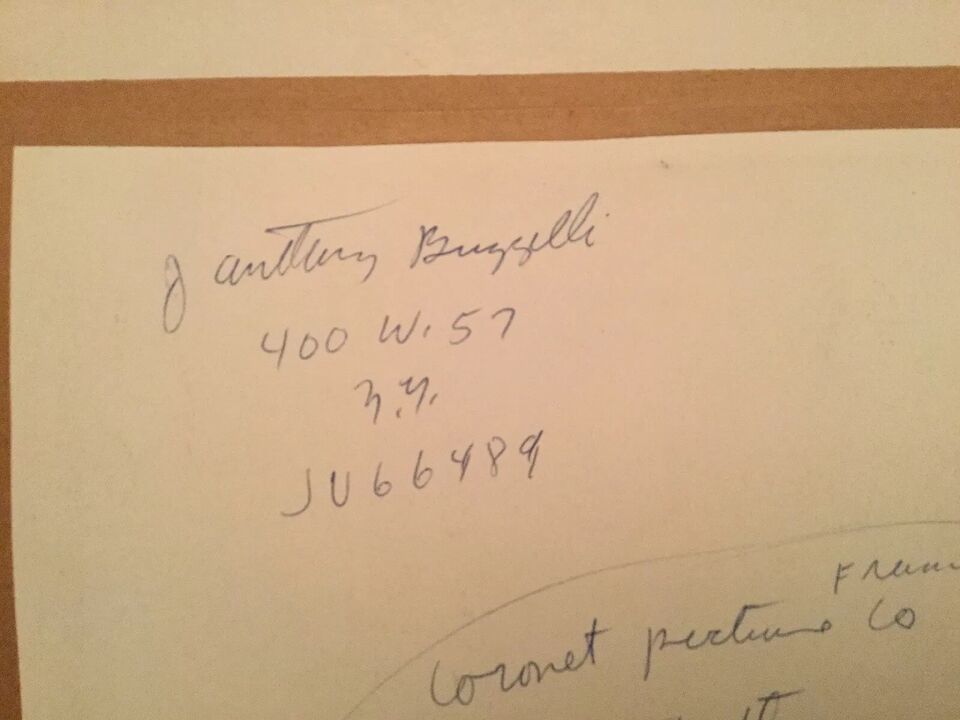 J Anthony Buzzelli
400 W. 57
N.Y.
JU66489
Fram
Coronet picture Co